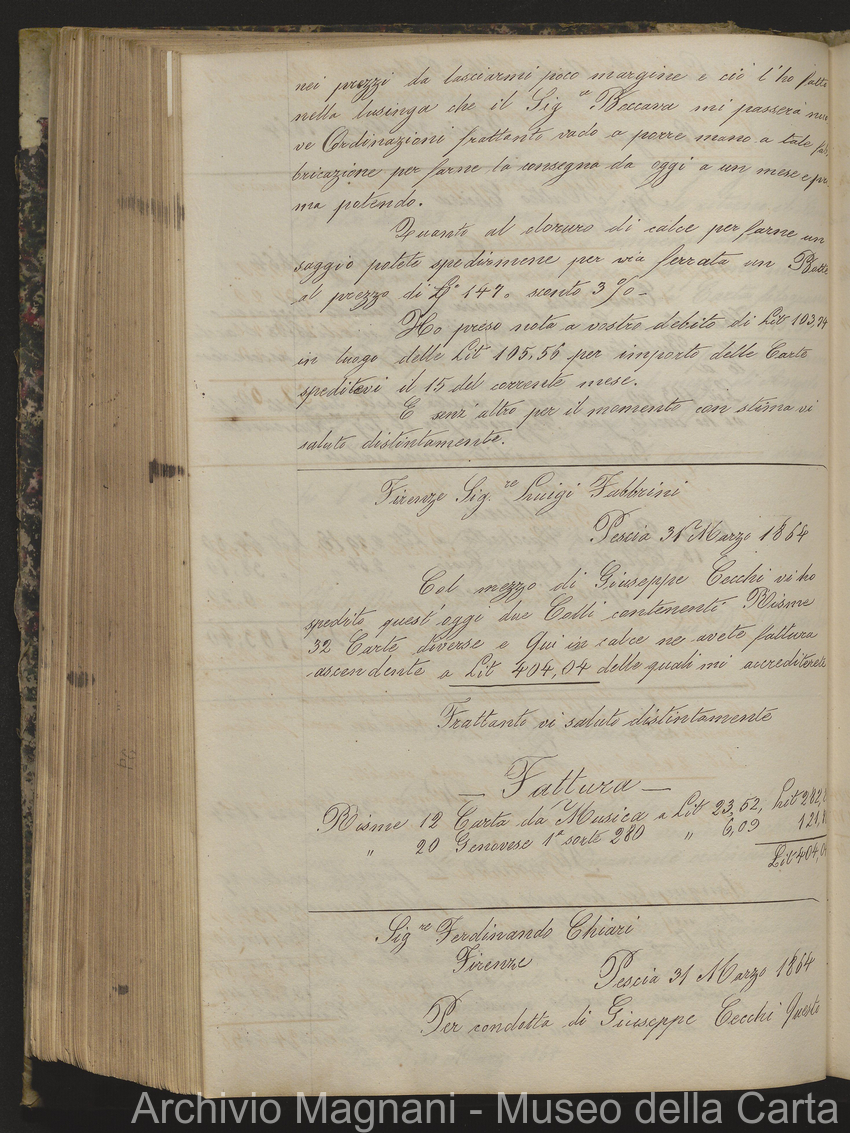 nei prezzi da lasciarmi poco margine e ciò l'ho fatto
nella lusinga che il Sigre Beccava mi passerà nuo
ve Ordinazioni frattanto vado a porre mano a tale fab
bricazione per farne la consegna da oggi a un mese e pri
ma potendo.
Quanto al cloruro di calce per farne un
saggio potete spedirmene per via ferrata un Barile
al prezzo di £ 147. sconto 3%_
Ho preso nota a vostro debito di Lit 103,24
in luogo delle Lit 105,56 per importo delle Carte
speditevi il 15 del corrente mese.
E senz'altro per il momento con stima vi
saluto distintamente.
Firenze Sig.re Luigi Fabbrini
Pescia 31 Marzo 1864
Col mezzo di Giuseppe Cecchi vi ho
spedito quest'oggi due Colli contenenti Risme
32 Carte diverse e qui in calce ne avete fattura
ascendente a Lit 404,04 delle quali mi accrediterete
Frattanto vi saluto distintamente
_ Fattura _
Risme 12 Carta da Musica a Lit 23,52, Lit 282,
" 20 Genovese 1a sorte 280 " 6,09 121,8
Lit 404,04
Sigre Ferdinando Chiari
Firenze
Pescia 31 Marzo 1864
Per condotta di Giuseppe Cecchi Questo
Archivio Magnani - Museo della Carta